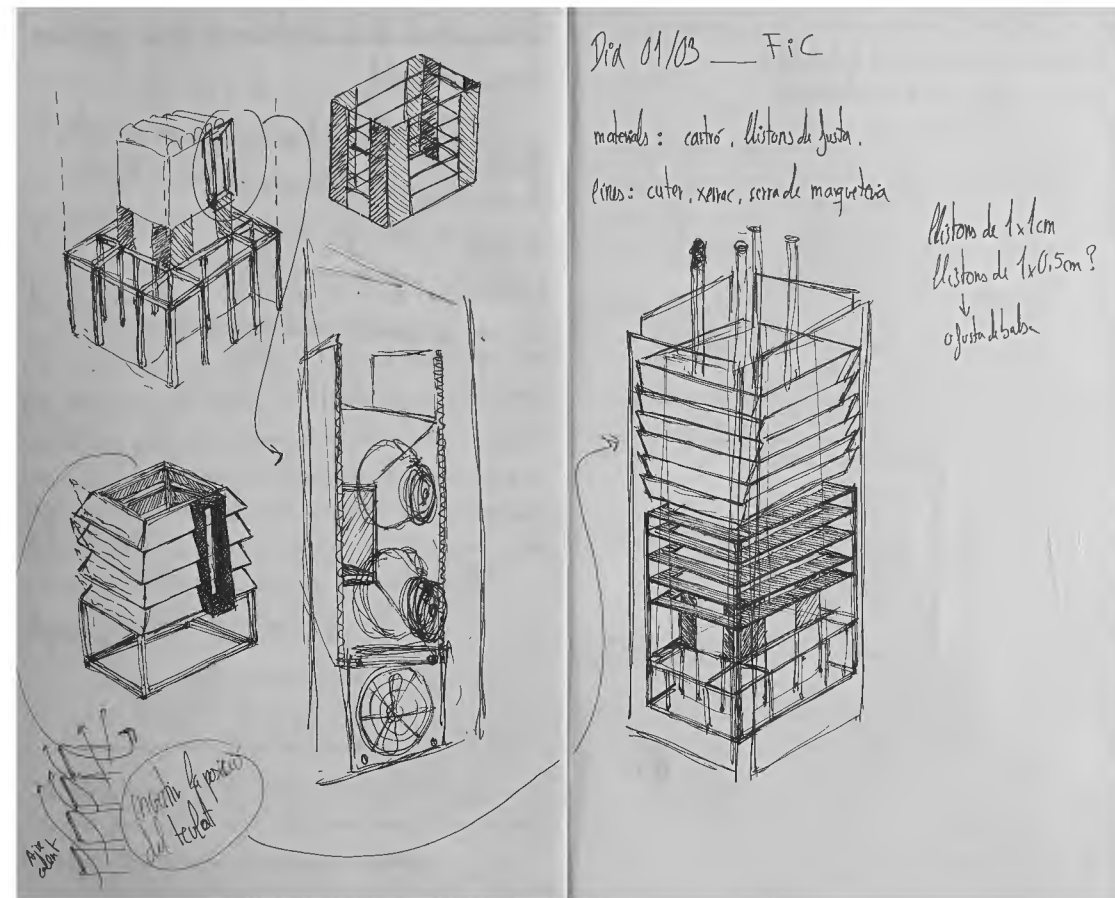 Dia 01/03 __ FiC
materials: cartró, llistons de fusta.
eines: cuter, xerrac, serra de marqueteria
llistons de 1x1cm
llistons de 1x0,5cm?
o fusta de balsa
la posició
del teulat
Aire
calent